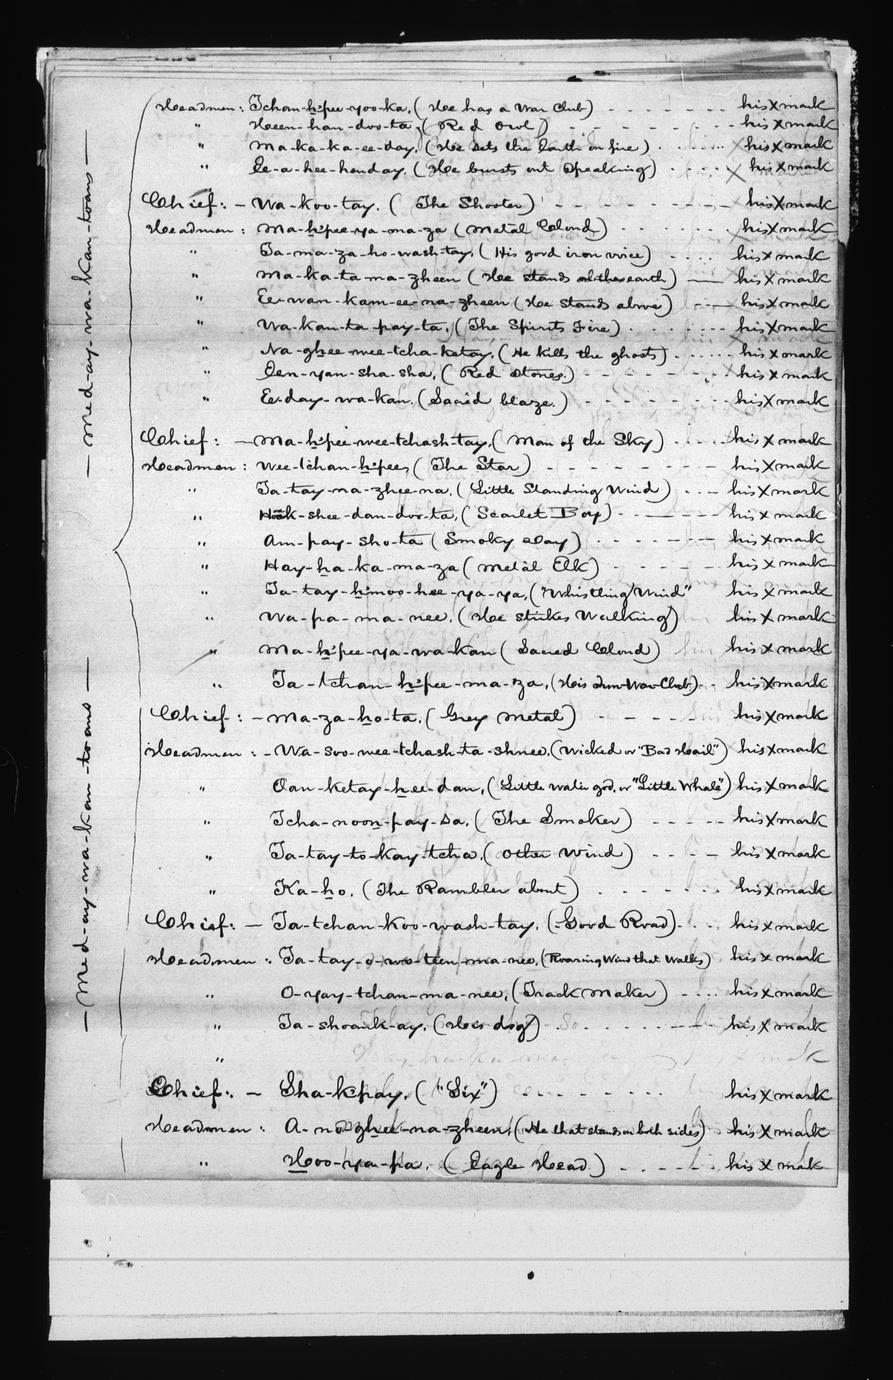 Headmen: Tchan-h'pee-yoo-ka, (He has a War Club) - - - - - - his X mark
" Heen-han-doo-ta, (Red Owl) - - - - - - his X mark
" Ma-ka-ka-ee-day, (He sets the Earth on fire) - - - - - his X mark
" Ee-a-hee-henday, (He bursts out Speaking) - - - - his X mark
Chief: - Wa-koo-tay. (The Shooter) - - - - - - - - his X mark
Headmen: Ma-h'pee-ya-ma-za (Metal Cloud) - - - - - his X mark
" Ta-ma-za-ho-wash-tay, (His good iron voice) - - - - his X mark
" Ma-ka-ta-na-zheen (He stands on the earth) - - - his X mark
" Ee-wan-kam-ee-na-zheen (He stands above) - - - his X mark
" Wa-kan-ta-pay-ta, (The Spirits Fire) - - - - - - his X mark
" Na-ghee-mee-tcha-ketay, (He kills the ghosts) - - - - - his X mark
" Een-yan-sha-sha, (Red Stones.) - - - - - - - his X mark
" Ee-day-wa-kan. (Sacred blaze.) - - - - - - - his X mark
Chief: - Ma-h'pee-wee-tchash-tay, (Man of the Sky) - - - - his X mark
Headmen: Wee-tchan-h'pee, (The Star) - - - - - - - his X mark
" Ta-tay-na-zhee-na, (Little Standing Wind) - - - his X mark
" Hok-shee-dan-doo-ta, (Scarlet Boy) - - - - - his X mark
" Am-pay-sho-ta (Smoky Day) - - - - - - his X mark
" Hay-ha-ka-ma-za (Metal Elk) - - - - - - his X mark
" Ta-tay-h'moo-hee-ya-ya, ("Whistling Wind" his X mark
" Wa-pa-ma-nee, (He strikes Walking) his X mark
" Ma-h'pee-ya-wa-kan (Sacred Cloud) his X mark
" Ta-tchan-h'pee-ma-za, (His Iron War Club) - - his X mark
Chief: - Ma-za-ho-ta, (Grey Metal) - - - - - his X mark
Headmen: - Wa-soo-mee-tchash-ta-shnee, (Wicked or "Bad Hail") his X mark
" Oan-ketay-hee-dan, (Little water god, or "Little Whale") his X mark
" Tcha-noon-pay-sa, (The Smoker) - - - - his X mark
" Ta-tay-to-kay-tcha, (Other Wind) - - - - his X mark
" Ka-ho, (The Rambler about) - - - - - his X mark
Chief: - Ta-tchan-koo-wash-tay, (Good Road) - - - his X mark
Headmen: Ta-tay-o-wo-teen-ma-nee, (Roaring Wind that Walks) his X mark
" O-yay-tchan-ma-nee, (Track Maker) - - - - his X mark
" Ta-shoank-ay, (His dog) - - - - - his X mark
"
Chief: - Sha-k'pay, ("Six") - - - - - - - his X mark
Headmen: A-no-ghee-na-zheen, (He that stands on both sides) his X mark
" Hoo-ya-pa, (Eagle Head) - - - - - his X mark
- Med-ay-wa-kan-toans -
- Med-ay-wa-kan-toans -